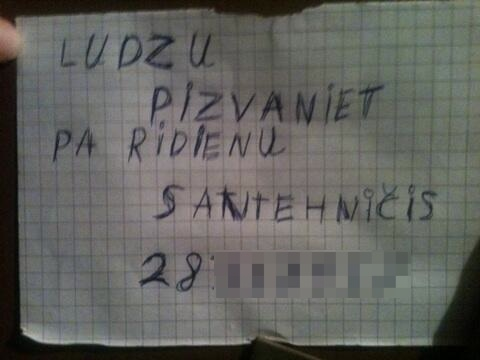 LUDZU
PIZVANIET
PA RIDIENU
SANTEHNIČIS
28